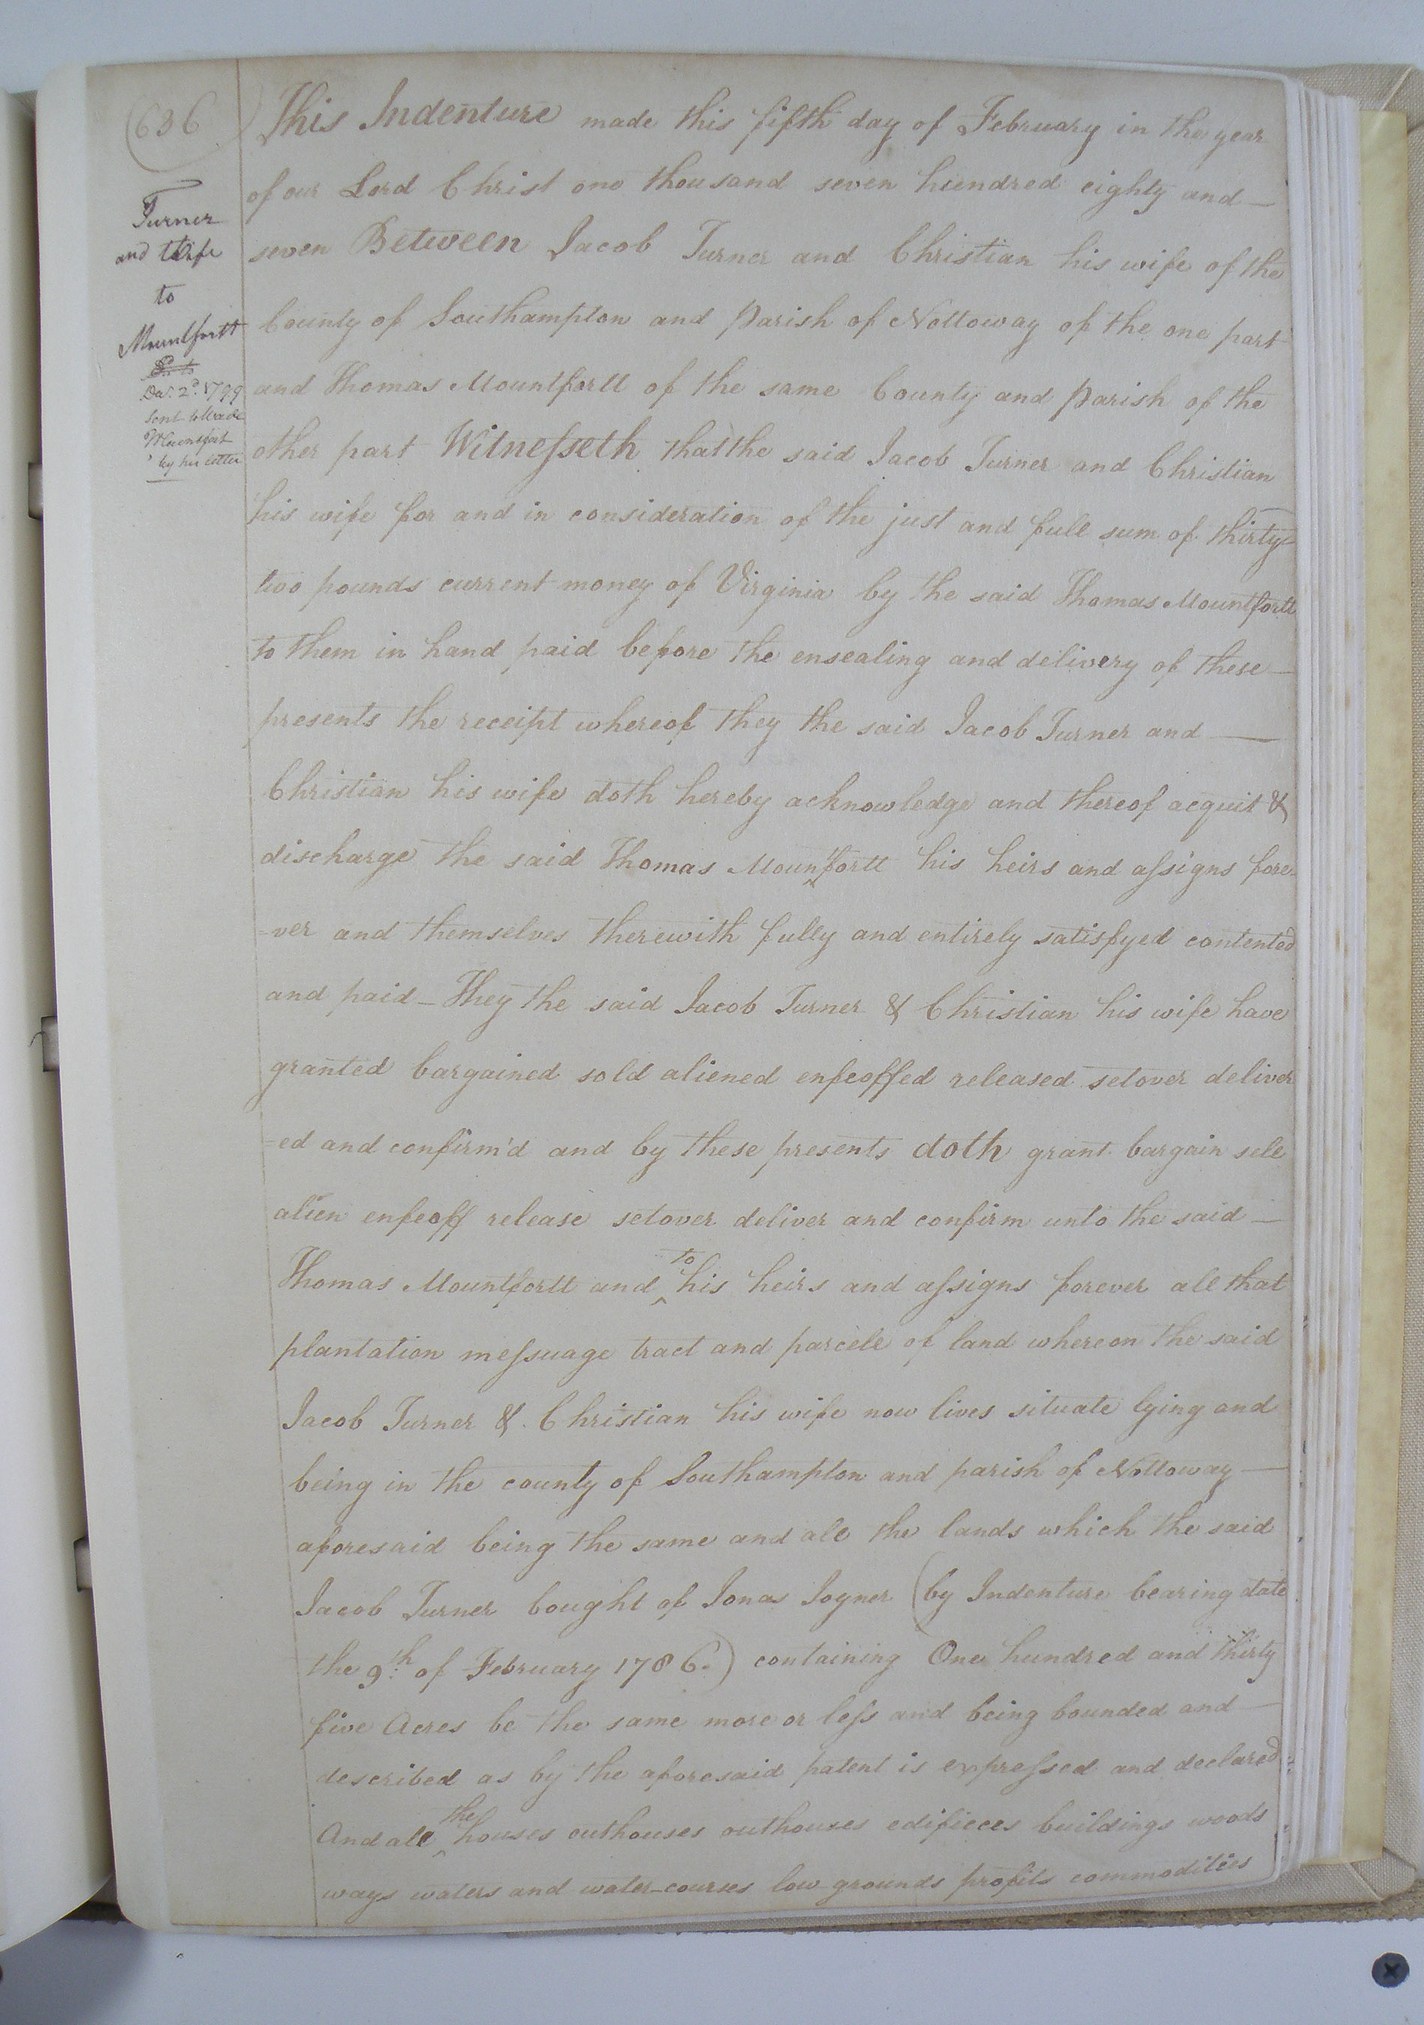 636
Turner
and Wife
to
Mountfortt
Decr. 2d. 1799
sent to
Mountfort
by his letter
This Indenture made this fifth day of February in the year
of our Lord Christ one thousand seven hundred eighty and—
seven Between Jacob Turner and Christian his wife of the
County of Southampton and Parish of Nottoway of the one part
and Thomas Mountfortt of the same County and Parish of the
other part Witnesseth that the said Jacob Turner and Christian
his wife for and in consideration of the just and full sum of thirty
two pounds current money of Virginia by the said Thomas Mountfortt
to them in hand paid before the ensealing and delivery of these—
presents the receipt whereof they the said Jacob Turner and —
Christian his wife doth hereby acknowledge and thereof acquit &
discharge the said Thomas Mountfortt his heirs and assigns fore-
=ver and themselves therewith fully and entirely satisfyed contented
and paid — They the said Jacob Turner & Christian his wife have
granted bargained sold aliened enfeoffed released setover deliver
=ed and confirm'd and by these presents doth grant bargain sell
alien enfeoff release setover deliver and confirm unto the said—
Thomas Mountfortt and to his heirs and assigns forever all that
plantation messuage tract and parcele of land whereon the said
Jacob Turner & Christian his wife now lives situate lying and
being in the county of Southampton and parish of Nottoway —
aforesaid being the same and all the lands which the said
Jacob Turner bought of Jonas Joyner (by Indenture bearing date
the 9th. of February 1786.) containing One hundred and thirty
five Acres be the same more or less and being bounded and—
described as by the aforesaid patent is expressed and declared
And all the houses outhouses outhouses edifieces buildings woods
ways waters and water-courses low grounds profits commodities